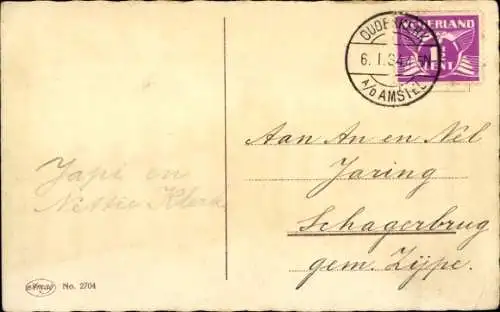 NEDERLAND
CENT
OUDERKERK
6.1.34
A/D AMSTEL
Aan An en Nel
Jaring
Schagerbrug
gem. Zijpe.
Japi en
Nettie Klerk
No. 2704